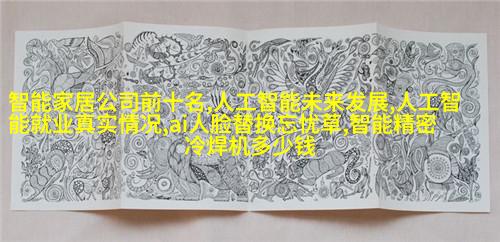 智能家居公司前十名,人工智能未来发展,人工智
能就业真实情况,ai人脸替换忘忧草,智能精密
冷焊机多少钱